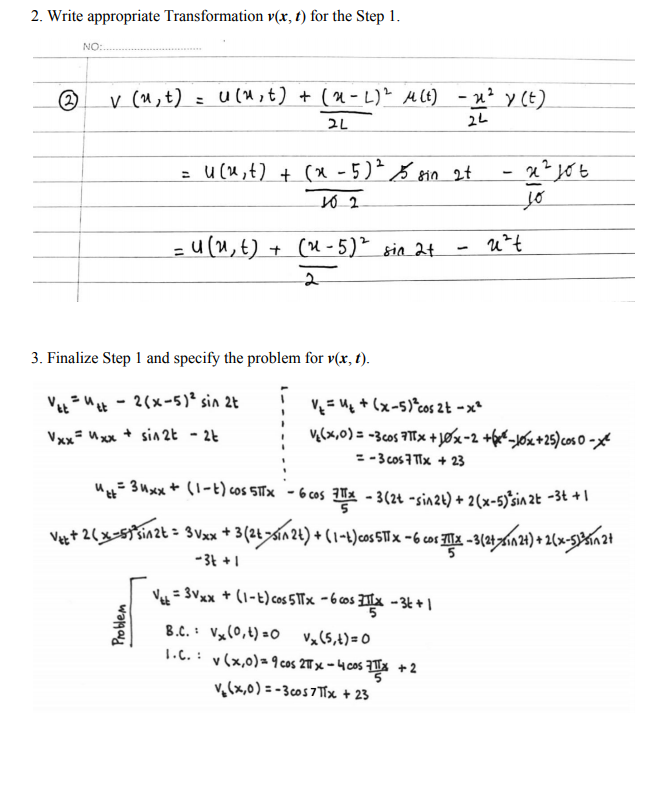 2. Write appropriate Transformation v(x, t) for the Step 1.
NO:
② v (x,t) = u(x,t) + (x-L)² μ(t) / 2L - x² γ(t) / 2L
= u(x,t) + (x-5)² 5 sin 2t / 10 2 - x² 10t / 10
= u(x,t) + (x-5)² / 2 sin 2t - x²t
3. Finalize Step 1 and specify the problem for v(x, t).
Vtt = Utt - 2(x-5)² sin 2t
Vxx = Uxx + sin2t - 2t
Vt = Ut + (x-5)² cos 2t - x²
Vt(x,0) = -3cos 7πx + 10x - 2 + (x² - 10x + 25) cos 0 - x²
= -3cos7πx + 23
Utt = 3Uxx + (1-t) cos 5πx - 6 cos 7πx/5 - 3(2t - sin2t) + 2(x-5)² sin 2t - 3t + 1
Vtt + 2(x-5)² sin2t = 3Vxx + 3(2t - sin 2t) + (1-t)cos5πx - 6 cos 7πx/5 - 3(2t - sin2t) + 2(x-5)² sin 2t
-3t + 1
Problem
Vtt = 3Vxx + (1-t) cos 5πx - 6 cos 7πx/5 - 3t + 1
B.C. : Vx(0,t) = 0 Vx(5,t) = 0
I.C. : v(x,0) = 9 cos 2πx - 4 cos 7πx/5 + 2
Vt(x,0) = -3cos7πx + 23